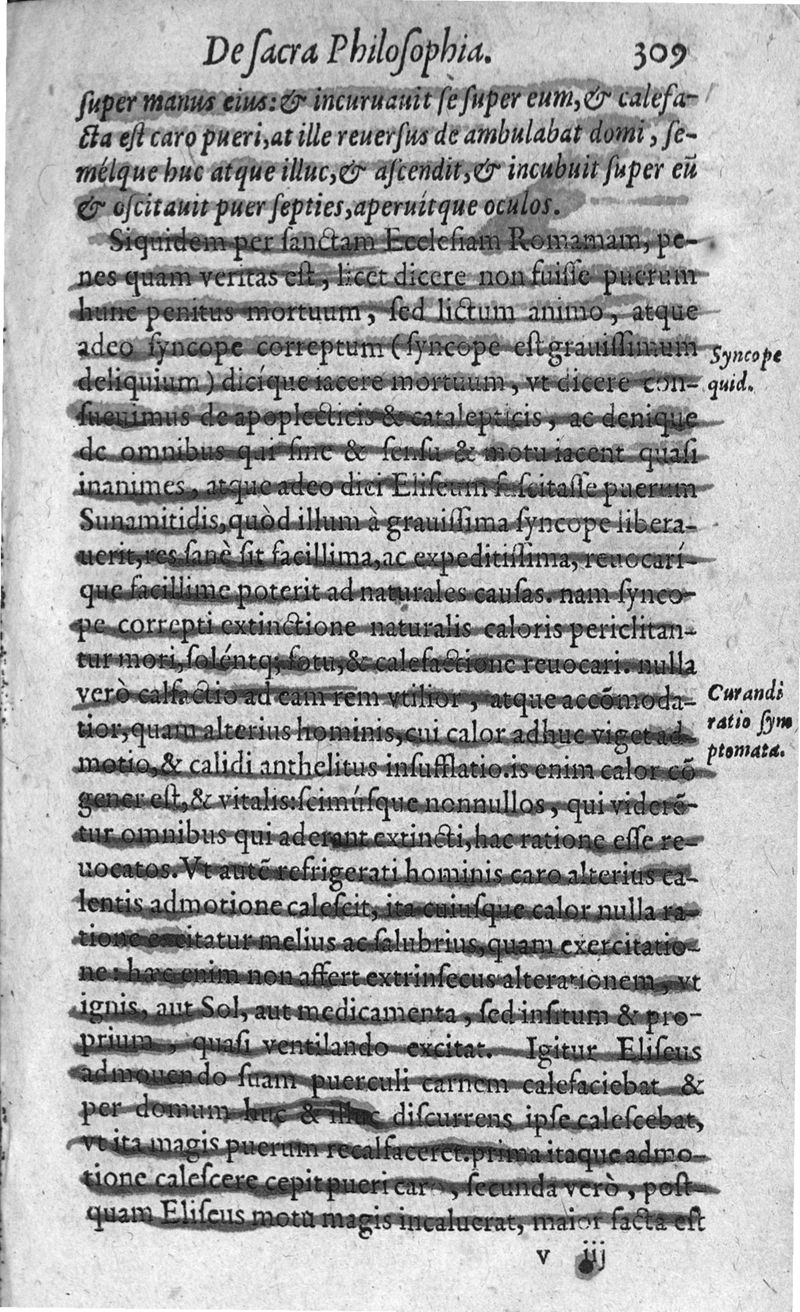 De sacra Philosophia. 309
ſuper manus eius: & incuruauit ſe ſuper eum, & calefa-
cta eſt caro pueri, at ille reuerſus de ambulabat domi, ſe-
mélque huc atque illuc, & aſcendit, & incubuit ſuper eũ
& oſcitauit puer ſepties, aperuítque oculos.
Siquidem per ſanctam Eccleſiam Romamam, pe-
nes quam veritas eſt, licet dicere non fuiſſe puerum
hunc penitus mortuum, ſed lictum animo, atque
adeo ſyncope correptum (ſyncope eſt grauiſſimum
Syncope
deliquium) dicíque iacere mortuum, vt dicere con-
quid.
ſueuimus de apoplecticis & catalepticis, ac denique
de omnibus qui ſine & ſenſu & motu iacent quaſi
inanimes, atque adeo dici Eliſeum ſuſcitaſſe puerum
Sunamitidis, quòd illum à grauiſſima ſyncope libera-
uerit, res ſanè ſit facillima, ac expeditiſſima, reuocarí-
que facillime poterit ad naturales cauſas. nam ſynco-
pe correpti extinctione naturalis caloris periclitan-
tur mori, ſoléntq; fotu, & calefactione reuocari. nulla
verò calfactio ad eam rem vtilior, atque accõmoda-
Curandi
tior, quam alterius hominis, cui calor adhuc viget ad
ratio ſym
motio, & calidi anthelitus inſufflatio. is enim calor cõ
ptomata.
gener eſt, & vitalis: ſcimúſque nonnullos, qui viderẽ-
tur omnibus qui aderant extincti, hac ratione eſſe re-
uocatos. Vt autẽ refrigerati hominis caro alterius ca-
lentis admotione caleſcit, ita cuiuſque calor nulla ra-
tione excitatur melius ac ſalubrius, quam exercitatio-
ne: hæc enim non affert extrinſecus alterationem, vt
ignis, aut Sol, aut medicamenta, ſed inſitum & pro-
prium, quaſi ventilando excitat. Igitur Eliſeus
admouendo ſuam puerculi carnem calefaciebat &
per domum huc & illuc diſcurrens ipſe caleſcebat,
vt ita magis puerum recalfaceret. prima itaque admo-
tione caleſcere cepit pueri caro, ſecunda verò, poſt-
quam Eliſeus motu magis incaluerat, maior facta eſt
v iij